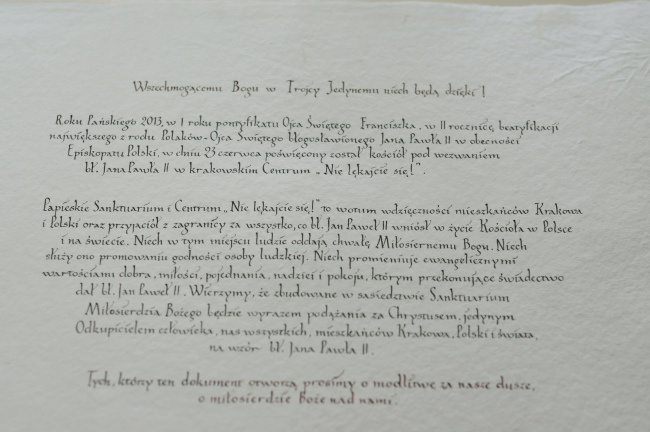 Wszechmogącemu Bogu w Trójcy Jedynemu niech będą dzięki!
Roku Pańskiego 2013, w I roku pontyfikatu Ojca Świętego Franciszka, w II rocznicę beatyfikacji
największego z rodu Polaków-Ojca Świętego błogosławionego Jana Pawła II w obecności
Episkopatu Polski, w dniu 23 czerwca poświęcony został kościół pod wezwaniem
bł. Jana Pawła II w krakowskim Centrum „Nie lękajcie się!".
Papieskie Sanktuarium i Centrum „Nie lękajcie się!" to wotum wdzięczności mieszkańców Krakowa
i Polski oraz przyjaciół z zagranicy za wszystko, co bł. Jan Paweł II wniósł w życie Kościoła w Polsce
i na świecie. Niech w tym miejscu ludzie oddają chwałę Miłosiernemu Bogu. Niech
służy ono promowaniu godności osoby ludzkiej. Niech promieniuje ewangelicznymi
wartościami dobra, miłości, pojednania, nadziei i pokoju, którym przekonujące świadectwo
dał bł. Jan Paweł II. Wierzymy, że zbudowane w sąsiedztwie Sanktuarium
Miłosierdzia Bożego będzie wyrazem podążania za Chrystusem, jedynym
Odkupicielem człowieka, nas wszystkich, mieszkańców Krakowa, Polski i świata,
na wzór bł. Jana Pawła II.
Tych, którzy ten dokument otworzą prosimy o modlitwę za nasze dusze,
o miłosierdzie Boże nad nami.